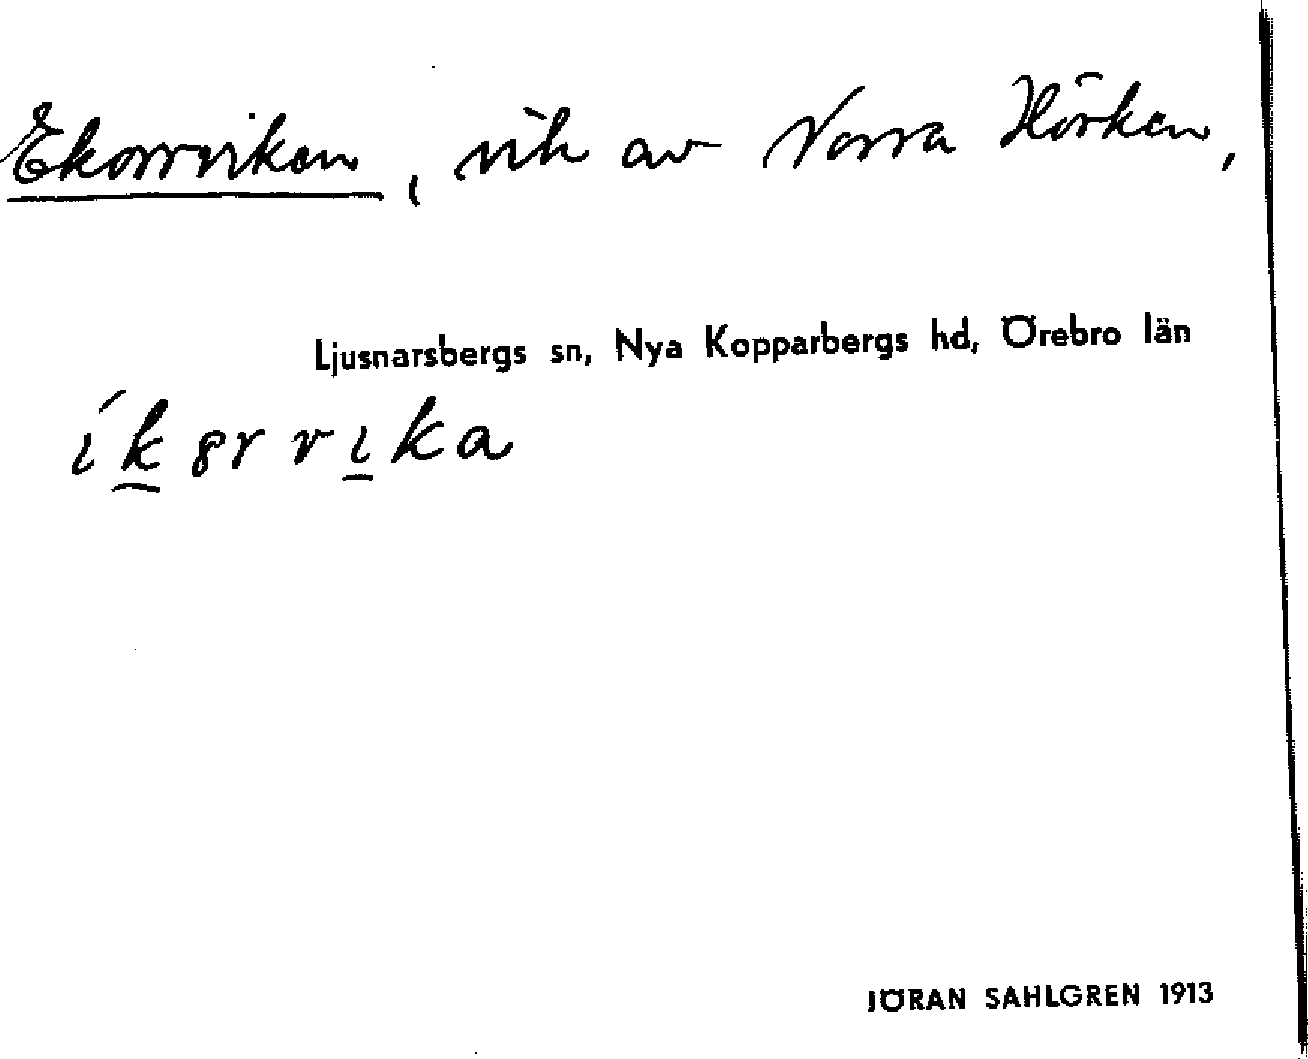 Ekorrviken, vik av Norra Hörken,
Ljusnarsbergs sn, Nya Kopparbergs hd, Örebro län
JÖRAN SAHLGREN 1913